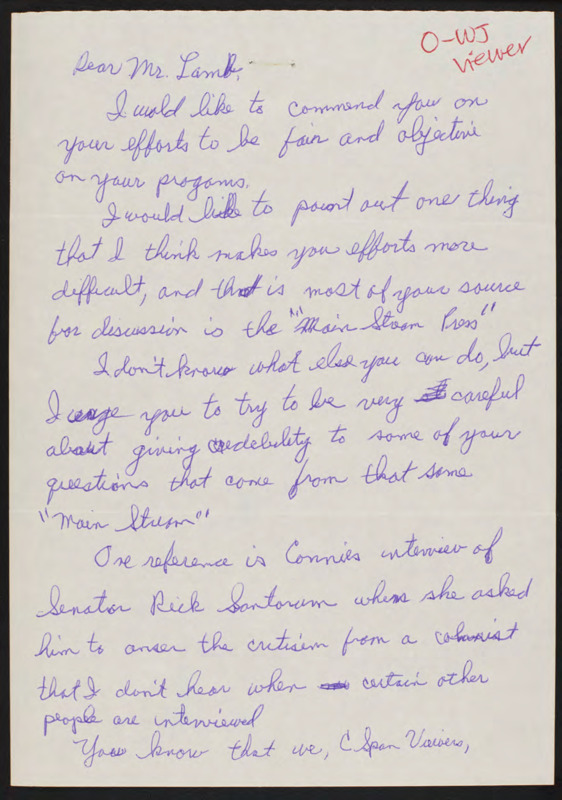 O-WJ
viewer
Dear Mr. Lamb,
I would like to commend you on
your efforts to be fair and objective
on your progams.
I would like to point out one thing
that I think makes you efforts more
difficult, and that is most of your source
for discussion is the "Main Stream Press"
I don't know what else you can do, but
I urge you to try to be very careful
about giving credebility to some of your
questions that come from that same
"Main Stream"
One reference is Connies interview of
Senator Rick Santorum when she asked
him to anser the critisim from a columist
that I don't hear when certain other
people are interviewed
You know that we, C Span Viewers,